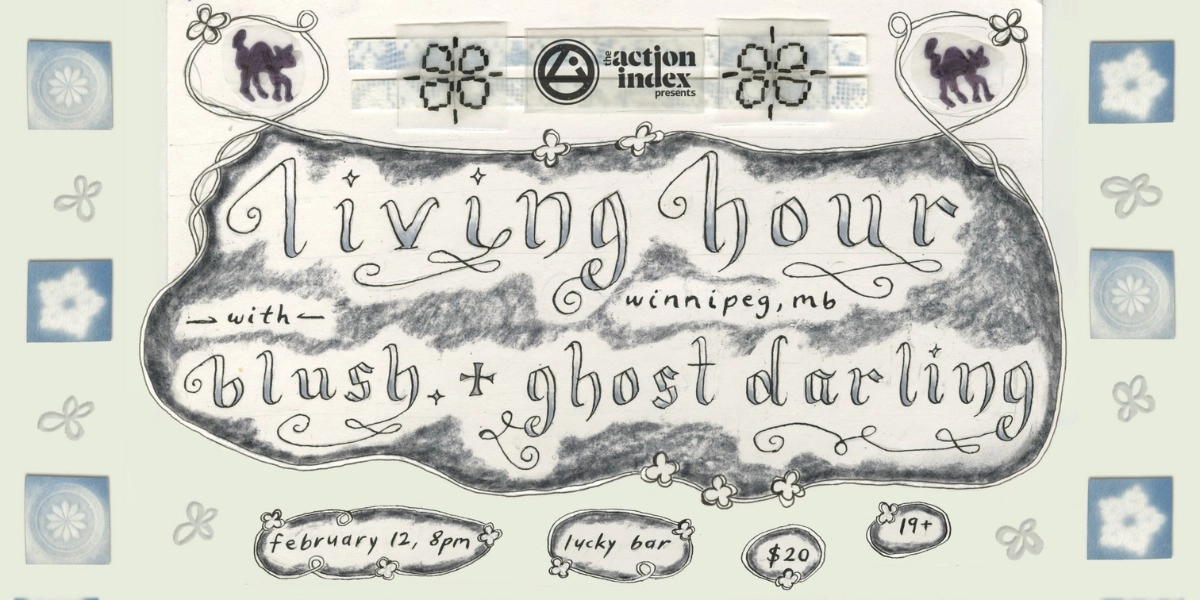 the action index
presents
living hour
winnipeg, mb
→ with ←
blush. + ghost darling
february 12, 8pm
lucky bar
$20
19+